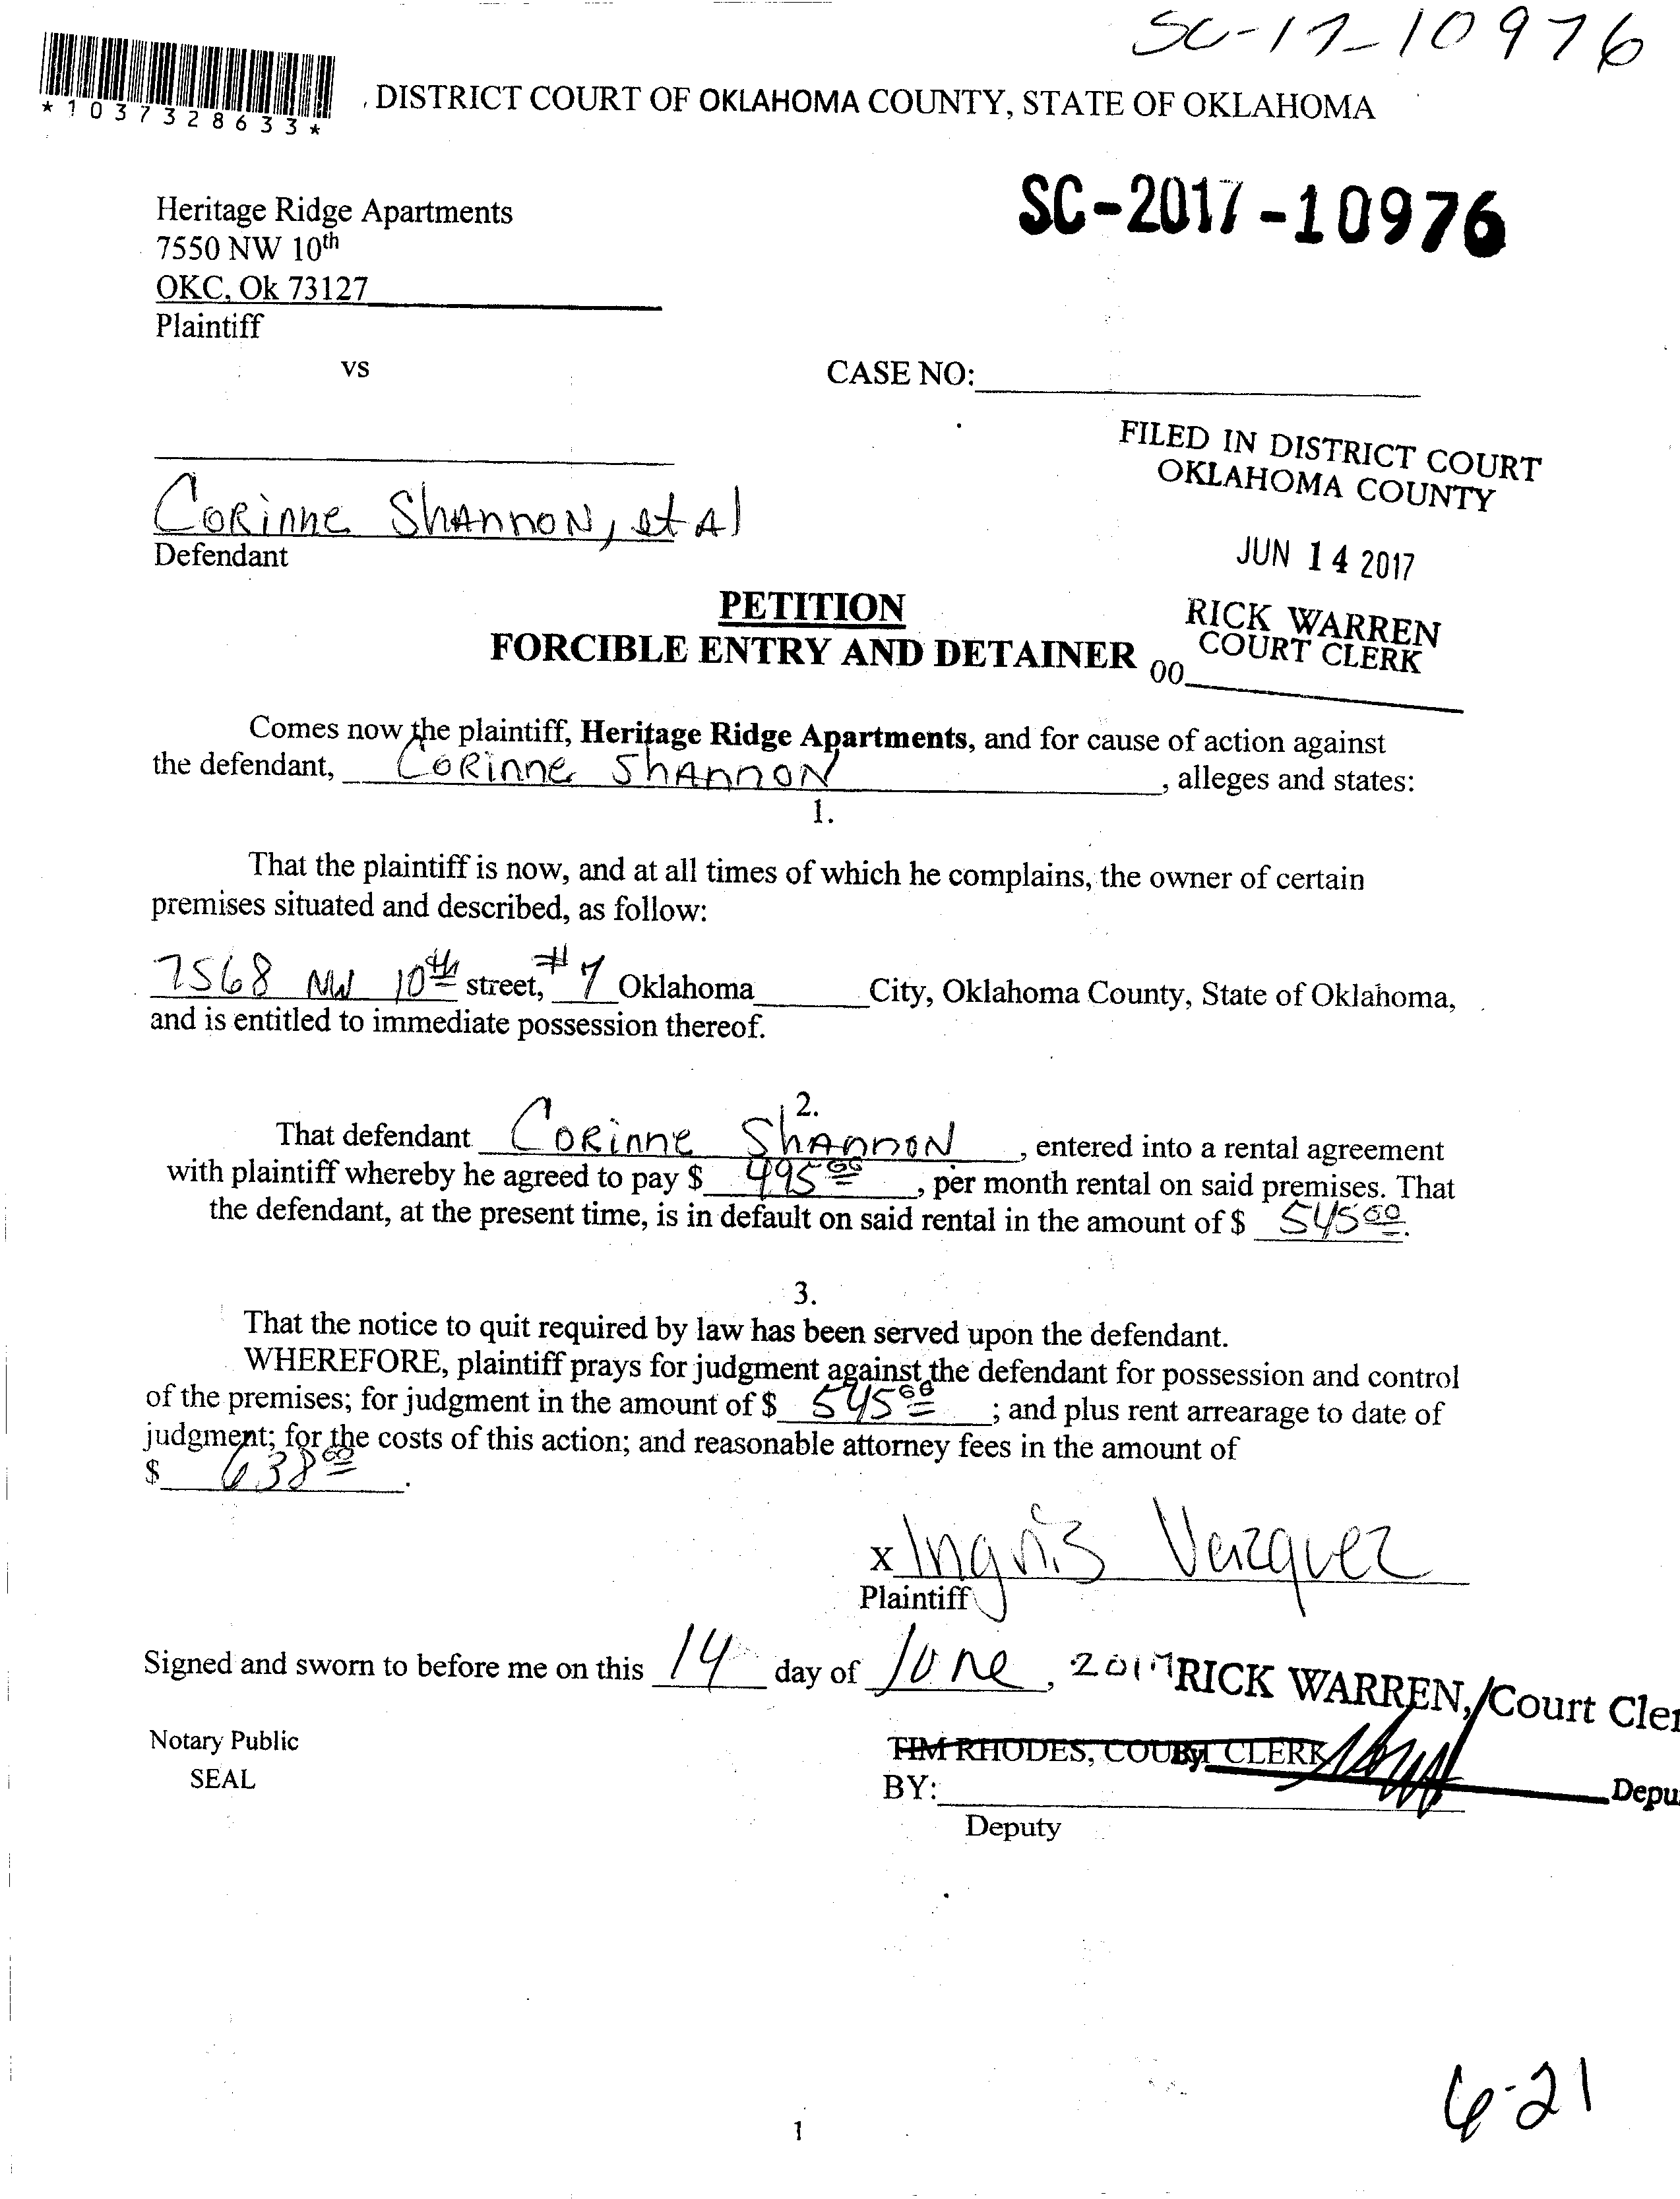 SC-17-10976
*1037328633*
DISTRICT COURT OF OKLAHOMA COUNTY, STATE OF OKLAHOMA
SC-2017-10976
Heritage Ridge Apartments
7550 NW 10th
OKC, Ok 73127
Plaintiff
vs
CASE NO:
FILED IN DISTRICT COURT
OKLAHOMA COUNTY
Corinne Shannon, et Al
Defendant
JUN 14 2017
PETITION
FORCIBLE ENTRY AND DETAINER
RICK WARREN
COURT CLERK
00
Comes now the plaintiff, Heritage Ridge Apartments, and for cause of action against
the defendant, Corinne Shannon, alleges and states:
1.
That the plaintiff is now, and at all times of which he complains, the owner of certain
premises situated and described, as follow:
7568 NW 10th street, #7 Oklahoma City, Oklahoma County, State of Oklahoma,
and is entitled to immediate possession thereof.
2.
That defendant Corinne Shannon, entered into a rental agreement
with plaintiff whereby he agreed to pay $ 495 00, per month rental on said premises. That
the defendant, at the present time, is in default on said rental in the amount of $ 545 00.
3.
That the notice to quit required by law has been served upon the defendant.
WHEREFORE, plaintiff prays for judgment against the defendant for possession and control
of the premises; for judgment in the amount of $ 545 00; and plus rent arrearage to date of
judgment; for the costs of this action; and reasonable attorney fees in the amount of
$ 638 00.
x Ingris Vazquez
Plaintiff
Signed and sworn to before me on this 14 day of June, 2017 RICK WARREN, Court Cler
Notary Public
SEAL
TIM RHODES, COURT CLERK
By
Depu
BY:
Deputy
6-21
1